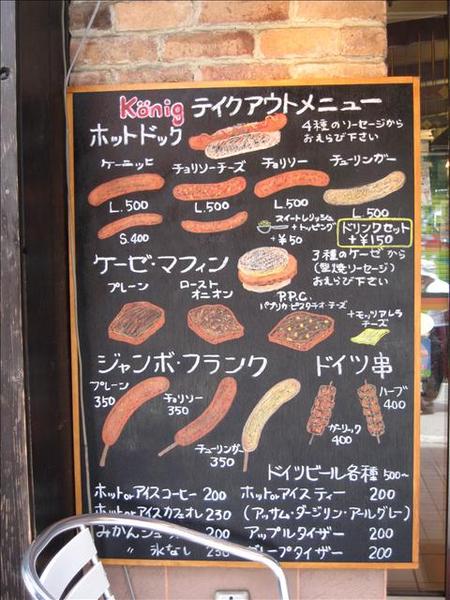 König テイクアウトメニュー
ホットドック
4種のソーセージから
おえらび下さい
ケーニッヒ
チョリソーチーズ
チョリソー
チューリンガー
L.500
L.500
L.500
L.500
S.400
スイートレリッシュ
+トッピング
+¥50
ドリンクセット
+¥150
ケーゼ・マフィン
3種のケーゼから
(型焼ソーセージ)
おえらび下さい
プレーン
ロースト
オニオン
P.P.C.
パプリカ・ピスタチオ・チーズ
+モッツアレラ
チーズ
ジャンボ・フランク
ドイツ串
プレーン
350
チョリソー
350
チューリンガー
350
ハーブ
400
ガーリック
400
ドイツビール各種 500~
ホットorアイスコーヒー 200
ホットorアイスティー 200
ホットorアイスカフェオレ 230
(アッサム・ダージリン・アールグレー)
みかんジュ 200
アップルタイザー 200
〃 氷なし 250
グレープタイザー 200